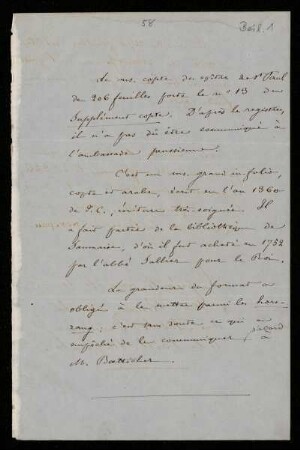 58
Beil. 1
Le ms. copte des épîtres de St Paul
de 206 feuilles porte le no 13 du
Supplément copte. D'après le registre,
il n'a pas dû être communiqué à
l'ambassade prussienne.
C'est un ms. grand in folio,
copte et arabe, écrit en l'an 1360
de J. C., écriture très soignée. Il
a fait partie de la bibliothèque de
d'où il fut acheté en 1752
par l'abbé pour le Roi.
La grandeur du format a
obligé à le mettre parmi les hors-
rang; c'est sans doute ce qui a
empêché de le communiquer
à
M. Boetticher.